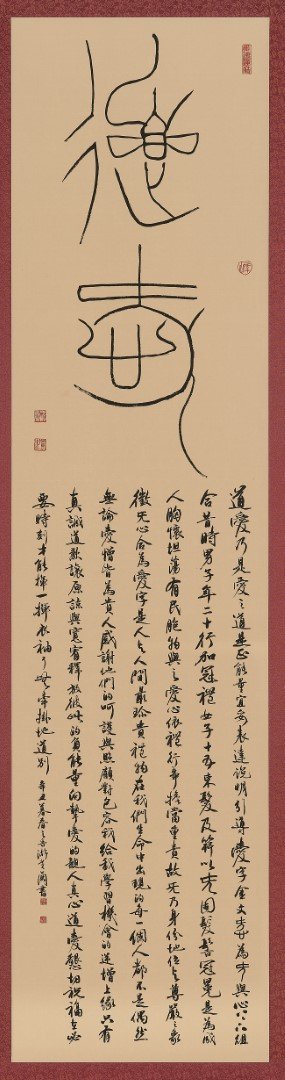 道愛
道愛乃是愛之道是正能量宜妥表達說明引導愛字金文𢖻為旡與心㣺組
合昔時男子年二十行加冠禮女子十五束髮及笄以旡固髮髻冠冕是為成
人胸懷坦蕩有民胞物與之愛心依禮行事擔當重責故旡乃身份地位之尊嚴之象
徵旡心合為愛字是人之人間最珍貴禮物在我們生命中出現的每一個人都不是偶然
無論愛憎皆為貴人感謝他們的呵護與照顧對包容我給我學習機會的逆增上緣只有
真誠道歉讓原諒與寬宥釋放彼此的負能量向摯愛的親人真心道愛懇切祝福在必
要時刻才能揮一揮衣袖了無牽掛地道別
辛丑暮春之吉